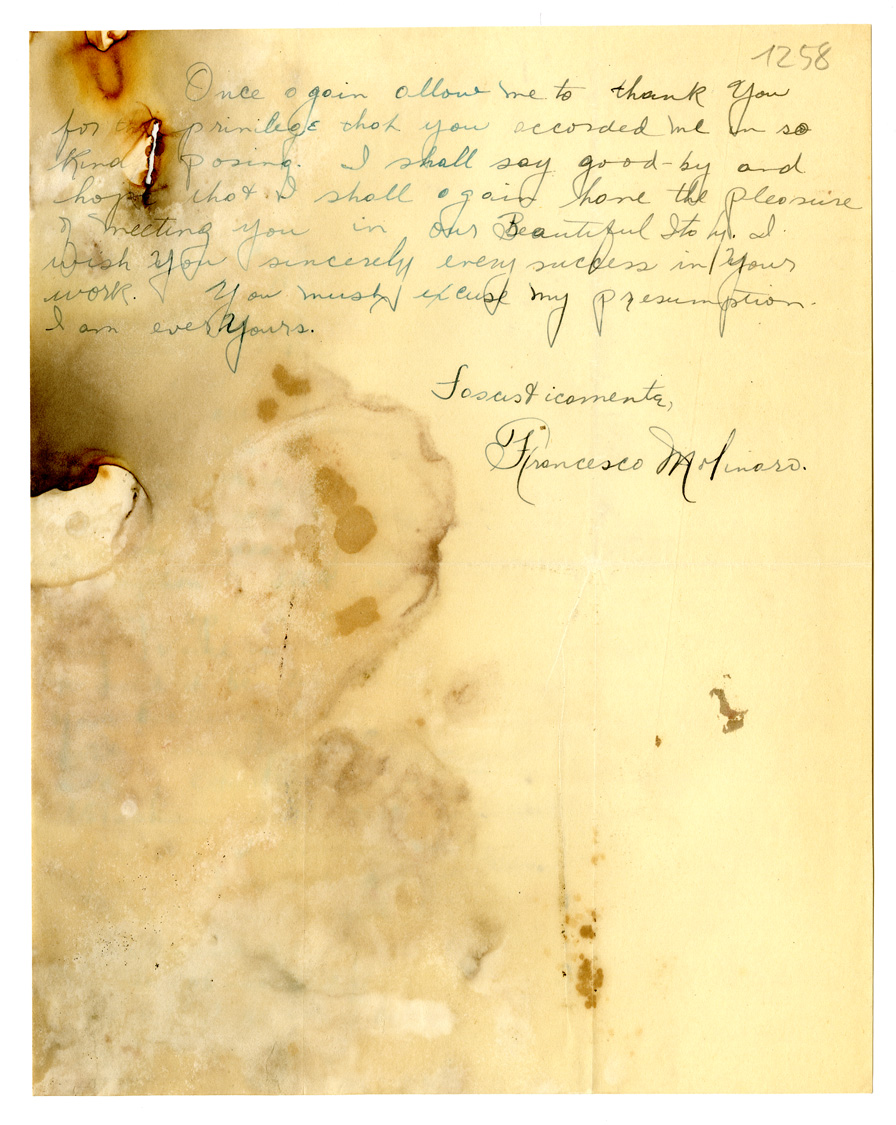 1258
Once again allow me to thank you
for the privilege that you accorded me in so
kind posing. I shall say good-by and
hope that I shall again have the pleasure
of meeting you in our Beautiful Italy. I
wish you sincerely every success in your
work. You must excuse my presumption.
I am ever yours.
Fascisticamente,
Francesco Molinaro.